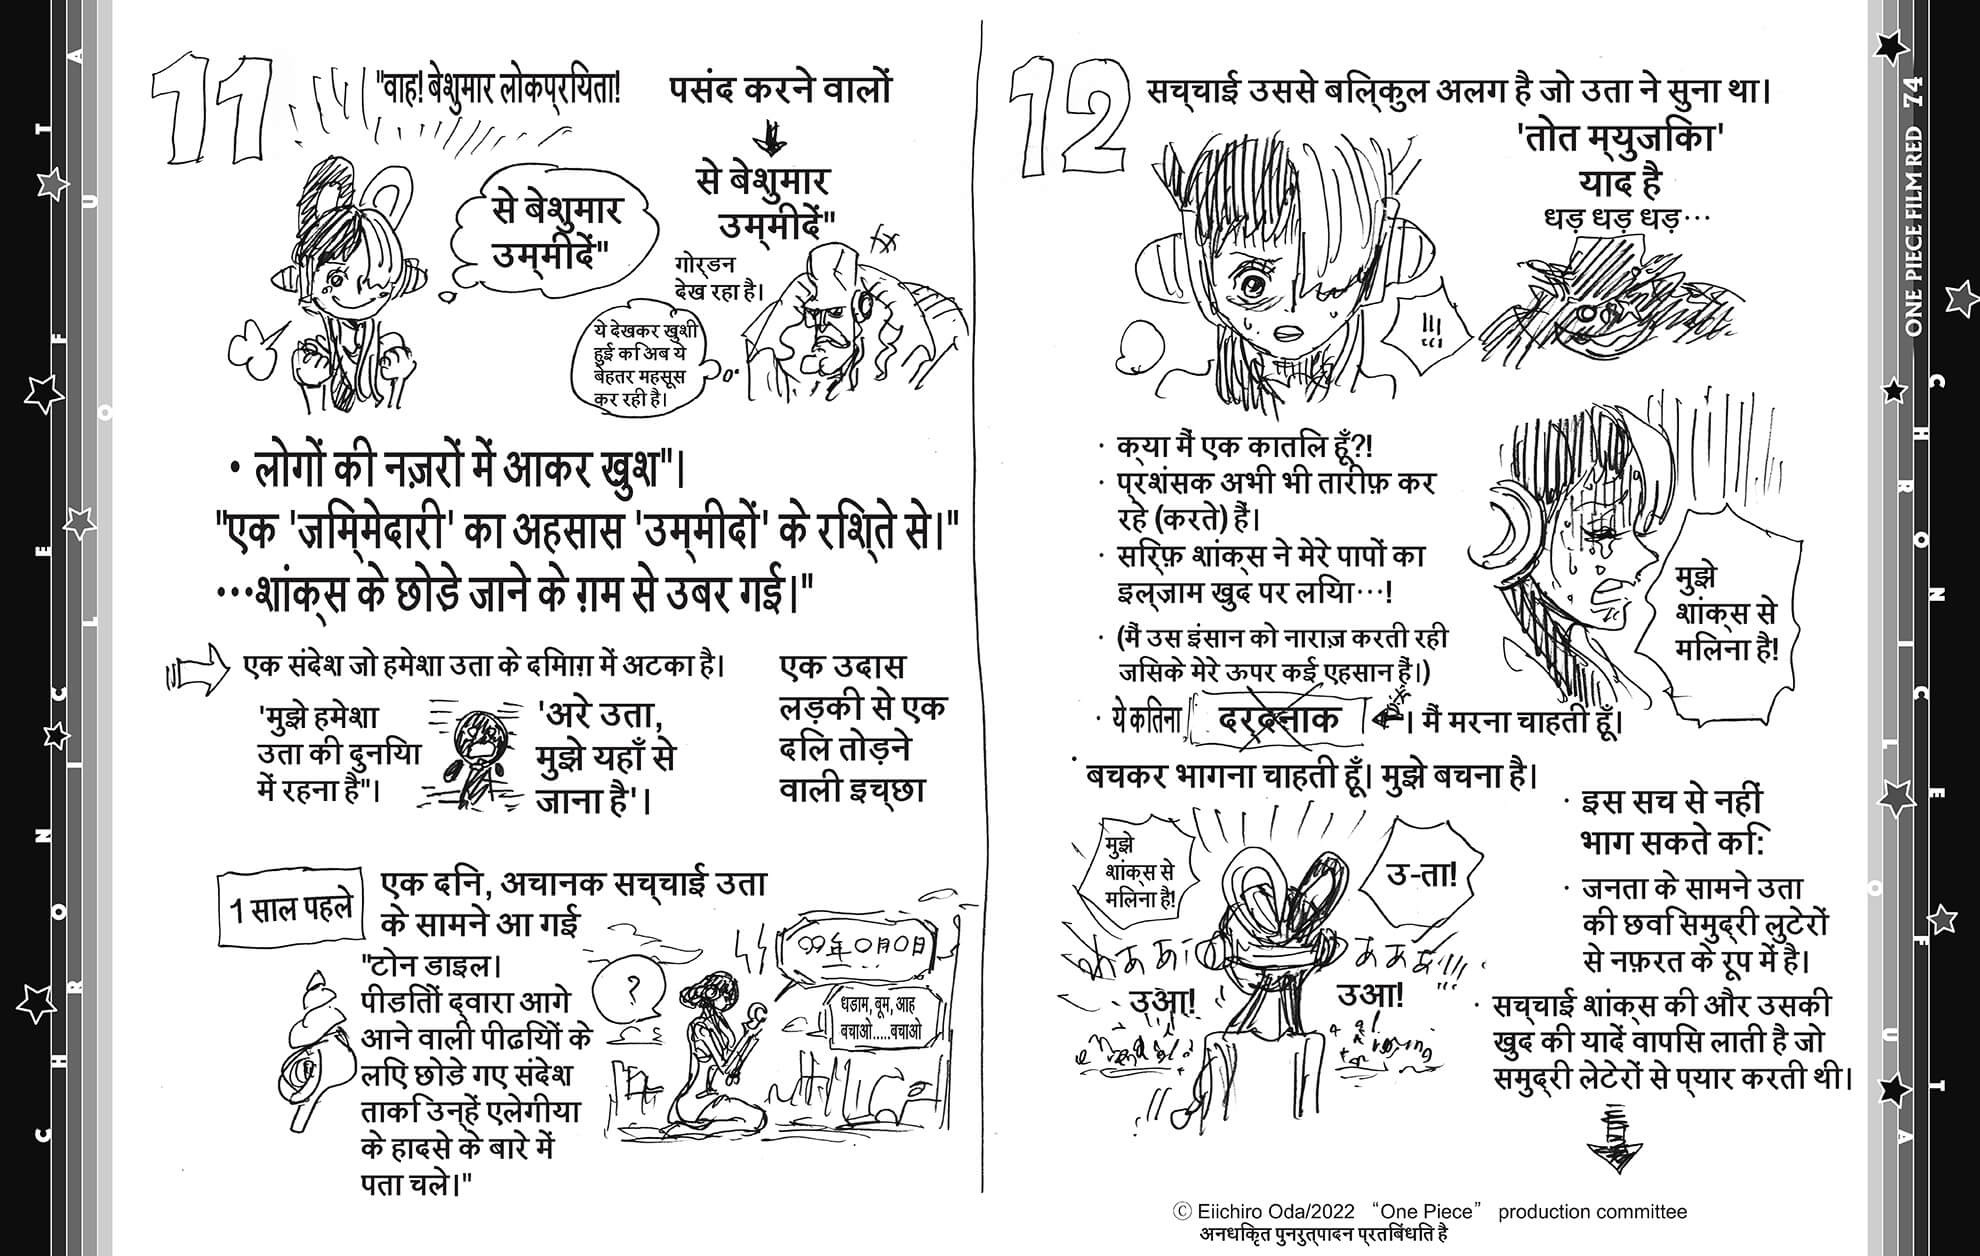 11
"वाह! बेशुमार लोकप्रयिता!
पसंद करने वालों
से बेशुमार
उम्मीदें"
से बेशुमार
उम्मीदें"
गोर्डन
देख रहा है।
ये देखकर खुशी
हुई कि अब ये
बेहतर महसूस
कर रही है।
• लोगों की नज़रों में आकर खुश"।
"एक 'जम्मिेदारी' का अहसास 'उम्मीदों' के रश्तिे से।"
…शांक्स के छोड़े जाने के ग़म से उबर गई।"
एक संदेश जो हमेशा उता के दमिाग़ में अटका है।
'मुझे हमेशा
उता की दुनयिा
में रहना है"।
'अरे उता,
मुझे यहाँ से
जाना है'।
एक उदास
लड़की से एक
दलि तोड़ने
वाली इच्छा
1 साल पहले
एक दनि, अचानक सच्चाई उता
के सामने आ गई
"टोन डाइल।
पीड़तिों द्वारा आगे
आने वाली पीढयिों के
लएि छोड़े गए संदेश
ताकि उन्हें एलेगीया
के हादसे के बारे में
पता चले।"
?
〇〇年〇月〇日
धडाम, बूम, आह
बचाओ.....बचाओ
12
सच्चाई उससे बल्किुल अलग है जो उता ने सुना था।
'तोत म्युजकिा'
याद है
धड़ धड़ धड़…
!!!
· क्या मैं एक कातलि हूँ?!
· प्रशंसक अभी भी तारीफ़ कर
रहे (करते) हैं।
· सर्फ़ि शांक्स ने मेरे पापों का
इल्जाम खुद पर लयिा…!
· (मैं उस इंसान को नाराज़ करती रही
जसिके मेरे ऊपर कई एहसान हैं।)
मुझे
शांक्स से
मलिना है!
· ये कतिना दर्दनाक । मैं मरना चाहती हूँ।
· बचकर भागना चाहती हूँ। मुझे बचना है।
मुझे
शांक्स से
मलिना है!
उ-ता!
उआ!
उआ!
· इस सच से नहीं
भाग सकते कि:
· जनता के सामने उता
की छवि समुद्री लुटेरों
से नफ़रत के रूप में है।
· सच्चाई शांक्स की और उसकी
खुद की यादें वापसि लाती है जो
समुद्री लेटेरों से प्यार करती थी।
Ⓒ Eiichiro Oda/2022 “One Piece” production committee
अनधकिृत पुनरुत्पादन प्रतबिंधति है
CHRONICLE OF UTA
CHRONICLE OF UTA
ONE PIECE FILM RED 74